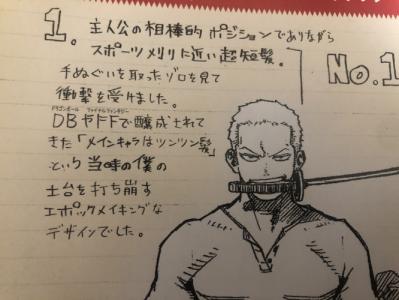 1. 主人公の相棒的ポジションでありながら
スポーツメリリに近い超短髪。
手ぬぐいを取ったゾロを見て
衝撃を受けました。
ドラゴンボール ファイナルファンタジー
DBやFFで醸成されて
きた「メインキャラはツンツン髪」
という当時の僕の
土台を打ち崩す
エポックメイキングな
デザインでした。
No.1